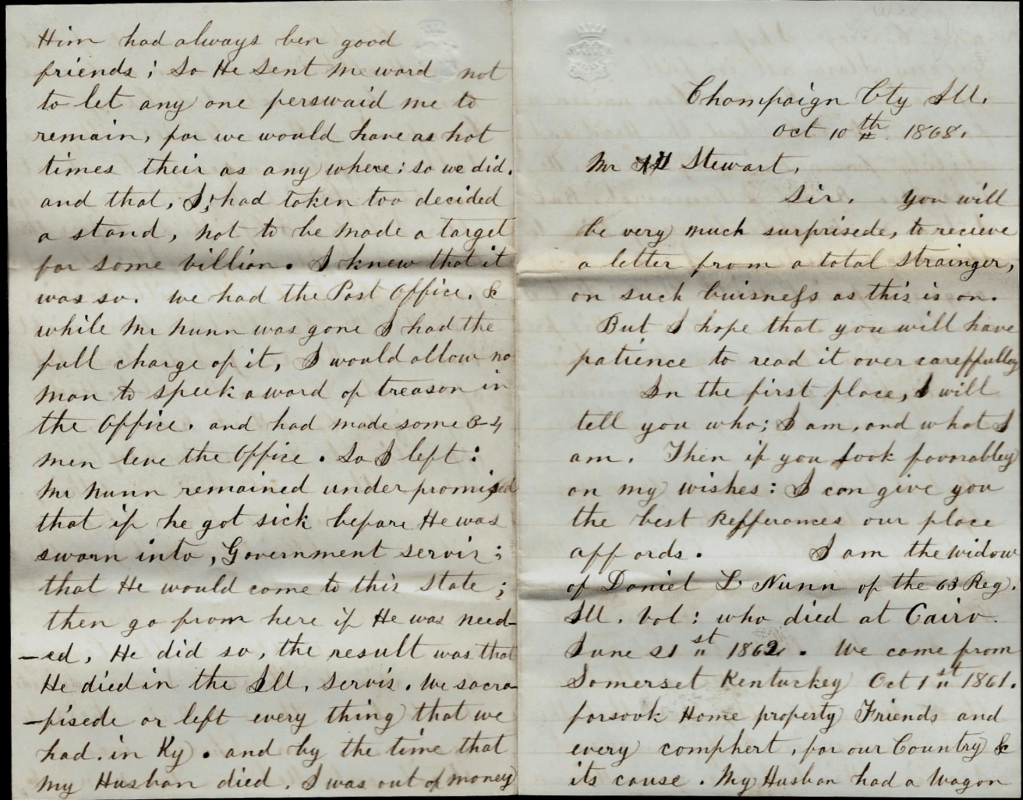 Champaign Cty Ill.
Oct 10th 1868.
Mr Stewart,
Sir. you will
be very much surprisede, to recieve
a letter from a total strainger,
on such buisness as this is on.
But I hope that you will have
patience to read it over careffulley
In the first place, I will
tell you who; I am, and what I
am. Then if you look favorabley
on my wishes: I can give you
the best Refferances our place
affords. I am the widow
of Daniel L Nunn of the 63 Reg.
Ill. Vol: who died at Cairo.
June 21st 1862. We came from
Somerset Kentuckey Oct 1st 1861.
forsook Home property Friends and
every comphert, for our Country &
its cause. My Husban had a Wagon
Him had always ben good
friends; So He Sent me word not
to let any one perswaid me to
remain, for we would have as hot
times their as any where: so we did.
and that, I; had taken too decided
a stand, not to be made a target
for some villian. I knew that it
was so. we had the Post Office. &
while Mr Nunn was gone I had the
full charge of it, I would allow no
man to speek a word of treason in
the Office. and had made some 3-4
men leve the Office. So I left:
Mr Nunn remained under promised
that if he got sick before He was
sworn into, Government servis;
that He would come to this State;
then go from here if He was need-
-ed, He did so, the result was that
He died in the Ill, servis. We sacra-
-fisede or left every thing that we
had. in Ky. and by the time that
my Husban died, I was out of money